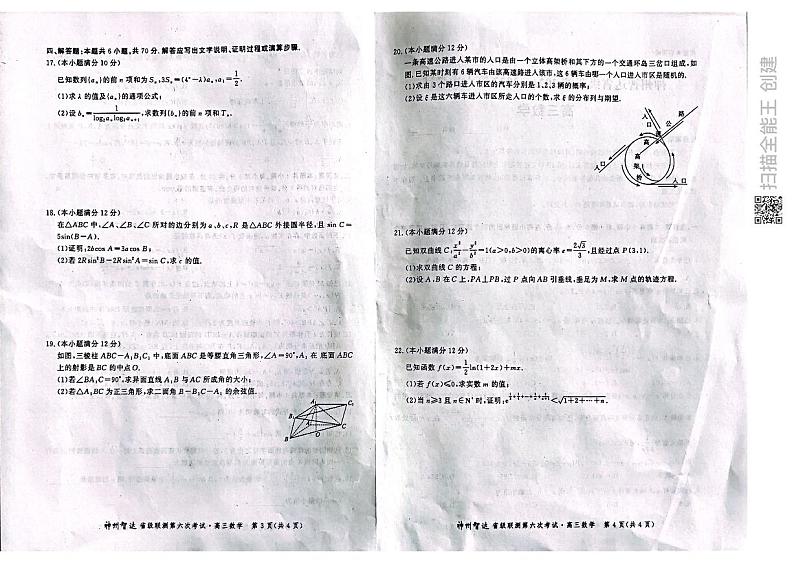 四、解答题:本题共6小题,共70分.解答应写出文字说明、证明过程或演算步骤.
17.(本小题满分10分)
已知数列{aₙ}的前n项和为Sₙ,3Sₙ=(4ⁿ-λ)aₙ,a₁=1/2.
(1)求λ的值及{aₙ}的通项公式;
(2)设bₙ=1/(log₂aₙlog₂aₙ₊₁),求数列{bₙ}的前n项和Tₙ.
18.(本小题满分12分)
在△ABC中,∠A、∠B、∠C所对的边分别为a、b、c,R是△ABC外接圆半径,且sin C=
5sin(B-A).
(1)证明:2bcos A=3acos B;
(2)若2Rsin²B-2Rsin²A=Csin C,求c的值.
19.(本小题满分12分)
如图,三棱柱ABC-A₁B₁C₁中,底面ABC是等腰直角三角形,∠A=90°,A₁在底面ABC
上的射影是BC的中点O.
(1)若∠BA₁C=90°,求异面直线A₁B与AC所成角的大小;
(2)若△A₁BC为正三角形,求二面角B-B₁C-A₁的余弦值.
A₁
C₁
B₁
A
C
B
O
神州智达 省级联测第六次考试·高三数学 第3页(共4页)
20.(本小题满分12分)
一条高速公路进入某市的入口是由一个立体高架桥和其下方的一个交通环岛三岔口组成,如
图.已知某时刻有6辆汽车由该高速路进入该市,这6辆车由哪一个入口进入市区是随机的.
(1)求由3个路口进入市区的汽车分别是1、2、3辆的概率;
(2)设ξ是这六辆车进入市区所走入口的个数,求ξ的分布列与期望.
入
口
高
速
公
路
高
架
桥
入口
入口
21.(本小题满分12分)
已知双曲线C:x²/a²-y²/b²=1(a>0,b>0)的离心率e=2√3/3,且经过点P(3,1).
(1)求双曲线C的方程;
(2)设A,B在C上,PA⊥PB,过P点向AB引垂线,垂足为M,求M点的轨迹方程.
22.(本小题满分12分)
已知函数f(x)=1/2ln(1+2x)+mx.
(1)若f(x)≤0,求实数m的值;
(2)当n≥3且n∈N*时,证明:<√(1+2+···+n).
神州智达 省级联测第六次考试·高三数学 第4页(共4页)
扫描全能王 创建